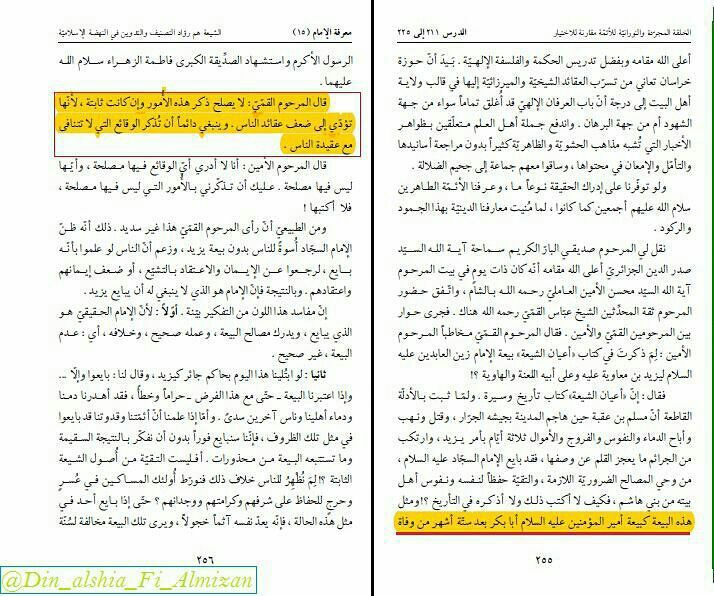 الدرس ٢١١ إلى ٢٢٥
الخلقة المجرّدة والنورانيّة للأئمّة مقارنة للاختيار
أعلى الله مقامه وبفضل تدريس الحكمة والفلسفة الإلهيّة . بَيدَ أنّ حوزة
خراسان تعاني من تسرّب العقائد الشيخيّة والميرزائيّة إليها في قالب ولاية
أهل البيت إلى درجة أنّ باب العرفان الإلهيّ قد أُغلق تماماً سواء من جهة
الشهود أم من جهة البرهان . واندفع جملة أهل العلم متعلّقين بظواهر
الأخبار التي تُشبه مذاهب الحشويّة والظاهريّة كثيراً بدون مراجعة أسانيدها
والتأمّل والإمعان في محتواها ، وساقوا معهم جماعة إلى جحيم الضلالة .
ولو توفّرنا على إدراك الحقيقة نوعاً ما ، وعرفنا الأئمّة الطاهرين
سلام الله عليهم أجمعين كما كانوا ، لما مُنيت معارفنا الدينيّة بهذا الجمود
والركود .
نقل لي المرحوم صديقي البارّ الكريم سماحة آية الله السيّد
صدر الدين الجزائريّ أعلى الله مقامه أنّه كان ذات يومٍ في بيت المرحوم
آية الله السيّد محسن الأمين العامليّ رحمه الله بالشام ، واتّفق حضور
المرحوم ثقة المحدّثين الشيخ عبّاس القمّيّ رحمه الله هناك . فجرى حوار
بين المرحومين القمّيّ والأمين . فقال المرحوم القمّيّ مخاطباً المرحوم
الأمين : لِمَ ذكرتَ في كتاب «أعيان الشيعة» بيعة الإمام زين العابدين عليه
السلام ليزيد بن معاوية عليه وعلى أبيه اللعنة والهاوية ؟!
فقال : إنّ «أعيان الشيعة» كتاب تأريخ وسيرة . ولمّا ثبت بالأدلّة
القاطعة أنّ مسلم بن عقبة حين هاجم المدينة بجيشه الجرّار ، وقتل ونهب
وأباح الدماء والنفوس والفروج والأموال ثلاثة أيّام بأمر يزيد ، وارتكب
من الجرائم ما يعجز القلم عن وصفها ، فقد بايع الإمام السجّاد عليه السلام ،
من وحي المصالح الضروريّة اللازمة ، والتقيّة حفظاً لنفسه ونفوس أهل
بيته من بني هاشم ، فكيف لا أكتب ذلك ولا أذكره في التأريخ ؟! ومثل
هذه البيعة كبيعة أمير المؤمنين عليه السلام أبا بكر بعد ستّة أشهر من وفاة
٢٥٥
معرفة الإمام (١٥)
الشيعة هم روّاد التصنيف والتدوين في النهضة الإسلاميّة
الرسول الأكرم واستشهاد الصدّيقة الكبرى فاطمة الزهراء سلام الله
عليهما .
قال المرحوم القمّيّ : لا يصلح ذكر هذه الأُمور وإن كانت ثابتة ، لأنّها
تؤدّي إلى ضعف عقائد الناس . وينبغي دائماً أن تُذكر الوقائع التي لا تتنافى
مع عقيدة الناس .
قال المرحوم الأمين : أنا لا أدري أيّ الوقائع فيها مصلحة ، وأيّها
ليس فيها مصلحة . عليك أن تذكّرني بالأُمور التي ليس فيها مصلحة ،
فلا أكتبها !
ومن الطبيعيّ أنّ رأى المرحوم القمّيّ هذا غير سديد . ذلك أنّه ظنّ
الإمام السجّاد أُسوةً للناس بدون بيعة يزيد ، وزعم أنّ الناس لو علموا بأنّه
بايع ، لرجعوا عن الإيمان والاعتقاد بالتشيّع ، أو ضعف إيمانهم
واعتقادهم . وبالنتيجة فإنّ الإمام هو الذي لا ينبغي له أن يبايع يزيد .
إنّ مفاسد هذا اللون من التفكير بيّنة . أوّلاً : لأنّ الإمام الحقيقيّ هو
الذي يبايع ، ويدرك مصالح البيعة ، وعمله صحيح ، وخلافه ، أي : عدم
البيعة ، غير صحيح .
ثانياً : لو ابتُلينا هذا اليوم بحاكم جائر كيزيد ، وقال لنا : بايعوا وإلّا ...
وإذا اعتبرنا البيعة ـ حتى مع هذا الفرض ـ حراماً وخطأً ، فقد أهدرنا دمنا
ودماء أهلينا وناس آخرين سدىً . وأمّا إذا علمنا أنّ أئمّتنا وقدوتنا قد بايعوا
في مثل تلك الظروف ، فإنّنا سنبايع فوراً بدون أن نفكّر بالنتيجة السقيمة
وما تستتبعه البيعة من محذورات . أفليست التقيّة من أُصول الشيعة
الثابتة ؟! لِمَ نُظْهِرُ للناس خلاف ذلك فنورّط أُولئك المساكين في عُسرٍ
وحرجٍ للحفاظ على شرفهم وكرامتهم ووجدانهم ؟ حتّى إذا بايع أحد في
مثل هذه الحالة ، فإنّه يعدّ نفسه آثماً خجولاً ، ويرى تلك البيعة مخالفة لسُنّة
٢٥٦
@Din_alshia_Fi_Almizan